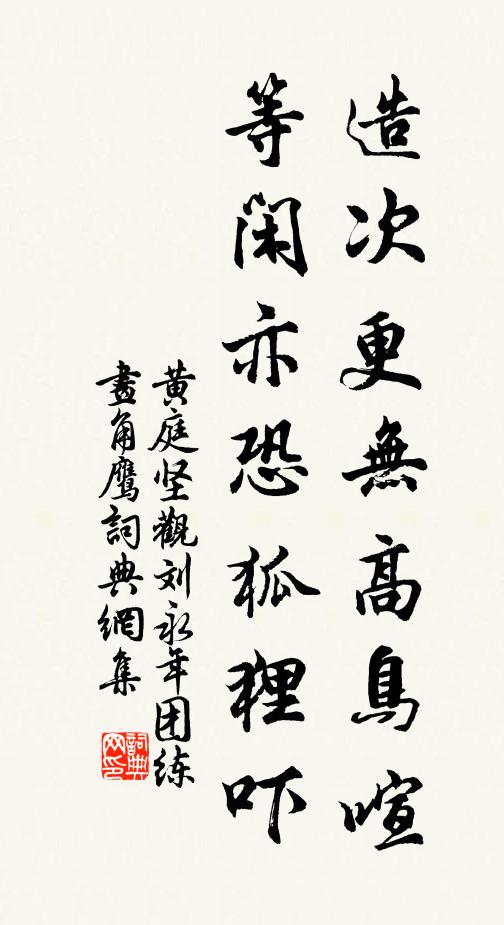 造次更無高鳥喧
等閑亦恐狐狸吓
黄庭坚觀刘永年团练
畫角鷹詞典網集
詞典网印